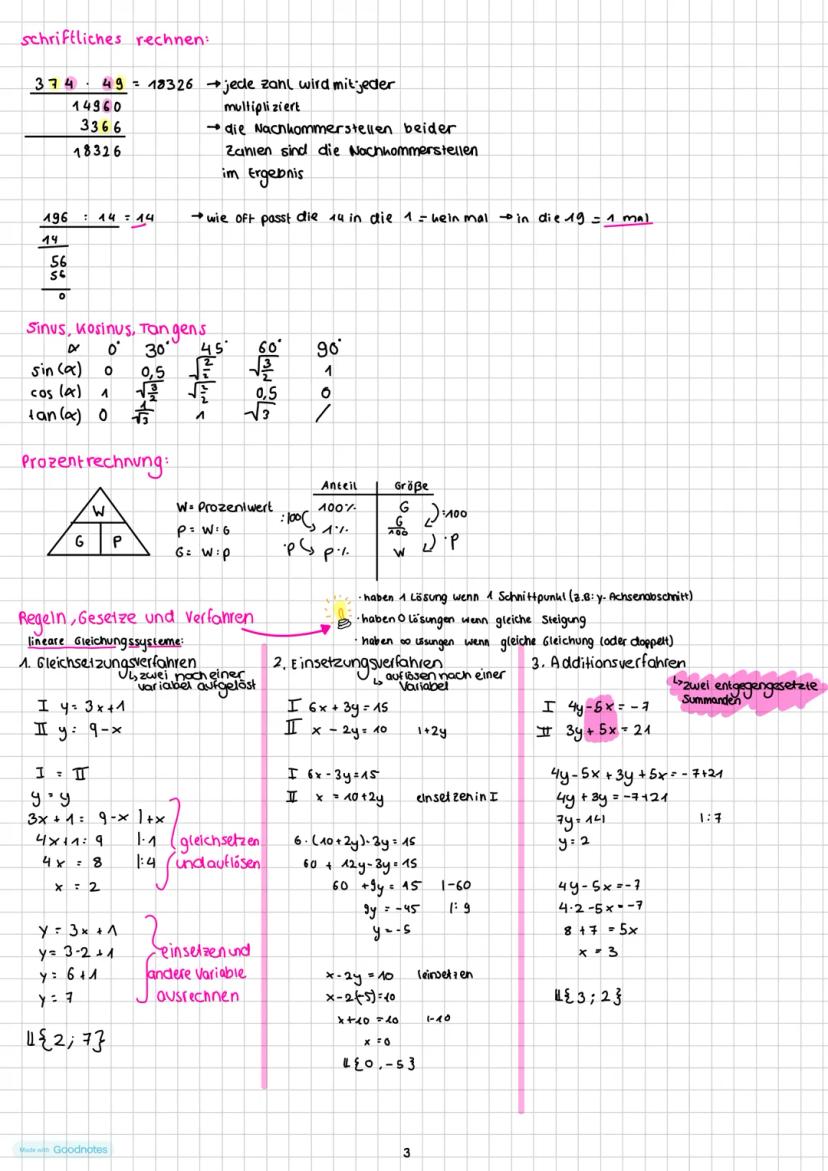 schriftliches rechnen:
374 · 49 = 18326 → jede Zahl wird mit jeder
14960 multipliziert
3366 → die Nachkommerstellen beider
18326 Zahlen sind die Nachkommerstellen
im Ergebnis
196 : 14 = 14 → wie oft passt die 14 in die 1 = kein mal → in die 19 = 1 mal
14
56
56
0
Sinus, Kosinus, Tangens
α 0° 30° 45° 60° 90°
sin(α) 0 0,5 √2/2 √3/2 1
cos(α) 1 √3/2 √2/2 0,5 0
tan(α) 0 1/√3 1 √3 /
Prozentrechnung:
W
G P
W = Prozentwert
P = W : G
G = W : p
Anteil Größe
:100 100% G :100
1% G/100
·P p% W ·P
· haben 1 Lösung wenn 1 Schnittpunkt (z.B: y-Achsenabschnitt)
· haben 0 Lösungen wenn gleiche Steigung
· haben ∞ Lösungen wenn gleiche Gleichung (oder doppelt)
Regeln, Gesetze und Verfahren
lineare Gleichungssysteme:
1. Gleichsetzungsverfahren
↳ zwei nach einer
variabel aufgelöst
I y = 3x + 1
II y = 9 - x
I = II
y = y
3x + 1 = 9 - x |+x
4x + 1 = 9 |-1
4x = 8 |:4
x = 2
gleichsetzen
und auflösen
y = 3x + 1
y = 3·2 + 1
y = 6 + 1
y = 7
einsetzen und
andere Variable
ausrechnen
𝕃{2; 7}
2. Einsetzungsverfahren
↳ auflösen nach einer
Variabel
I 6x + 3y = 15
II x - 2y = 10 |+2y
I 6x - 3y = 15
II x = 10 + 2y einsetzen in I
6·(10+2y)-3y = 15
60 + 12y - 3y = 15
60 + 9y = 15 |-60
9y = -45 |: 9
y = -5
x - 2y = 10 |einsetzen
x - 2·(-5) = 10
x + 10 = 10 |-10
x = 0
𝕃{0, -5}
3. Additionsverfahren
↳ zwei entgegengesetzte
Summanden
I 4y - 5x = -7
II 3y + 5x = 21
4y - 5x + 3y + 5x = -7 + 21
4y + 3y = -7 + 21
7y = 14 | |:7
y = 2
4y - 5x = -7
4·2 - 5x = -7
8 + 7 = 5x
x = 3
𝕃{3; 2}
Made with Goodnotes
3